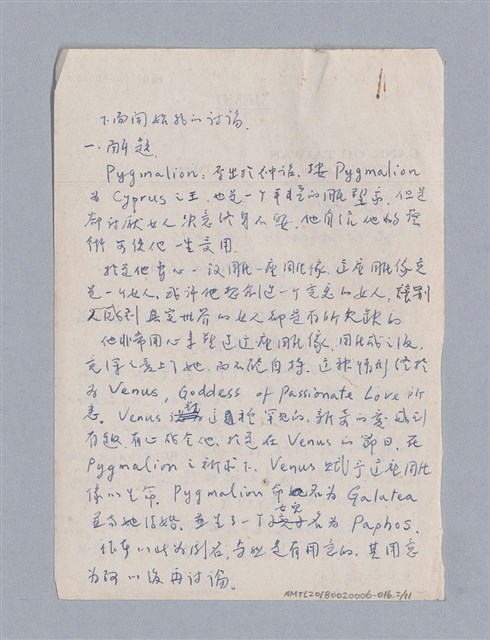 下面開始我的討論.
一.解題.
Pygmalion: 原出於神話. 按 Pygmalion
為 Cyprus 之王, 也是一个年輕的雕塑家. 但是
却討厭女人決意終身不娶. 他自信他的藝
術可使他一生受用.
於是他專心一致雕一座雕像. 這座雕像竟
是一个女人, 或許他想創造一个完美的女人,
感到真實世界的女人卻是有所欠缺的.
他非常用心來塑造這座雕像. 雕成之後,
竟深深愛上了她. 而不能自持. 這種情形終於
為 Venus, Goddess of Passionate Love 所
悉. Venus 對這種罕見的, 新奇的愛感到
有趣有心成全他. 於是在 Venus 的節日, 在
Pygmalion 之祈求下, Venus 賦予這座雕
像以生命. Pygmalion 命名為 Galatea
並與她結婚. 並生了一个女兒名為 Paphos.
作者以此為劇名, 當然是有用意的. 其用意
為何以後再討論.
NMTL20180020006-016.2/11